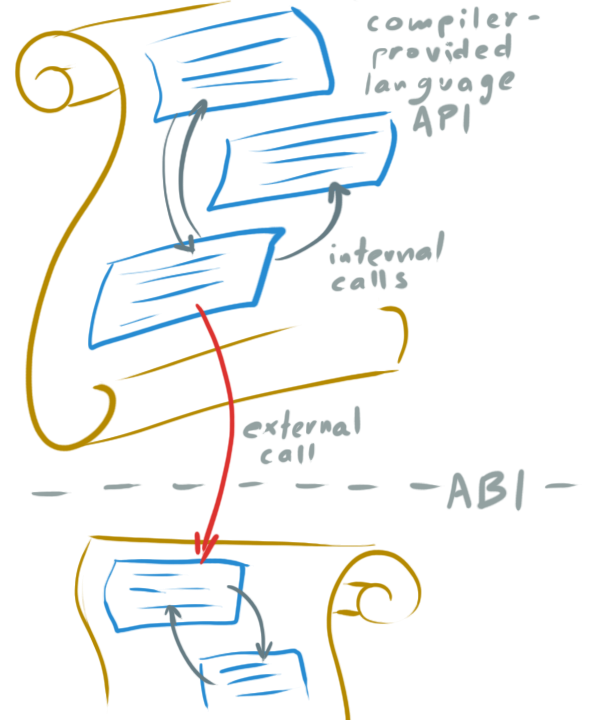 compiler-
provided
language
API
internal
calls
external
call
ABI